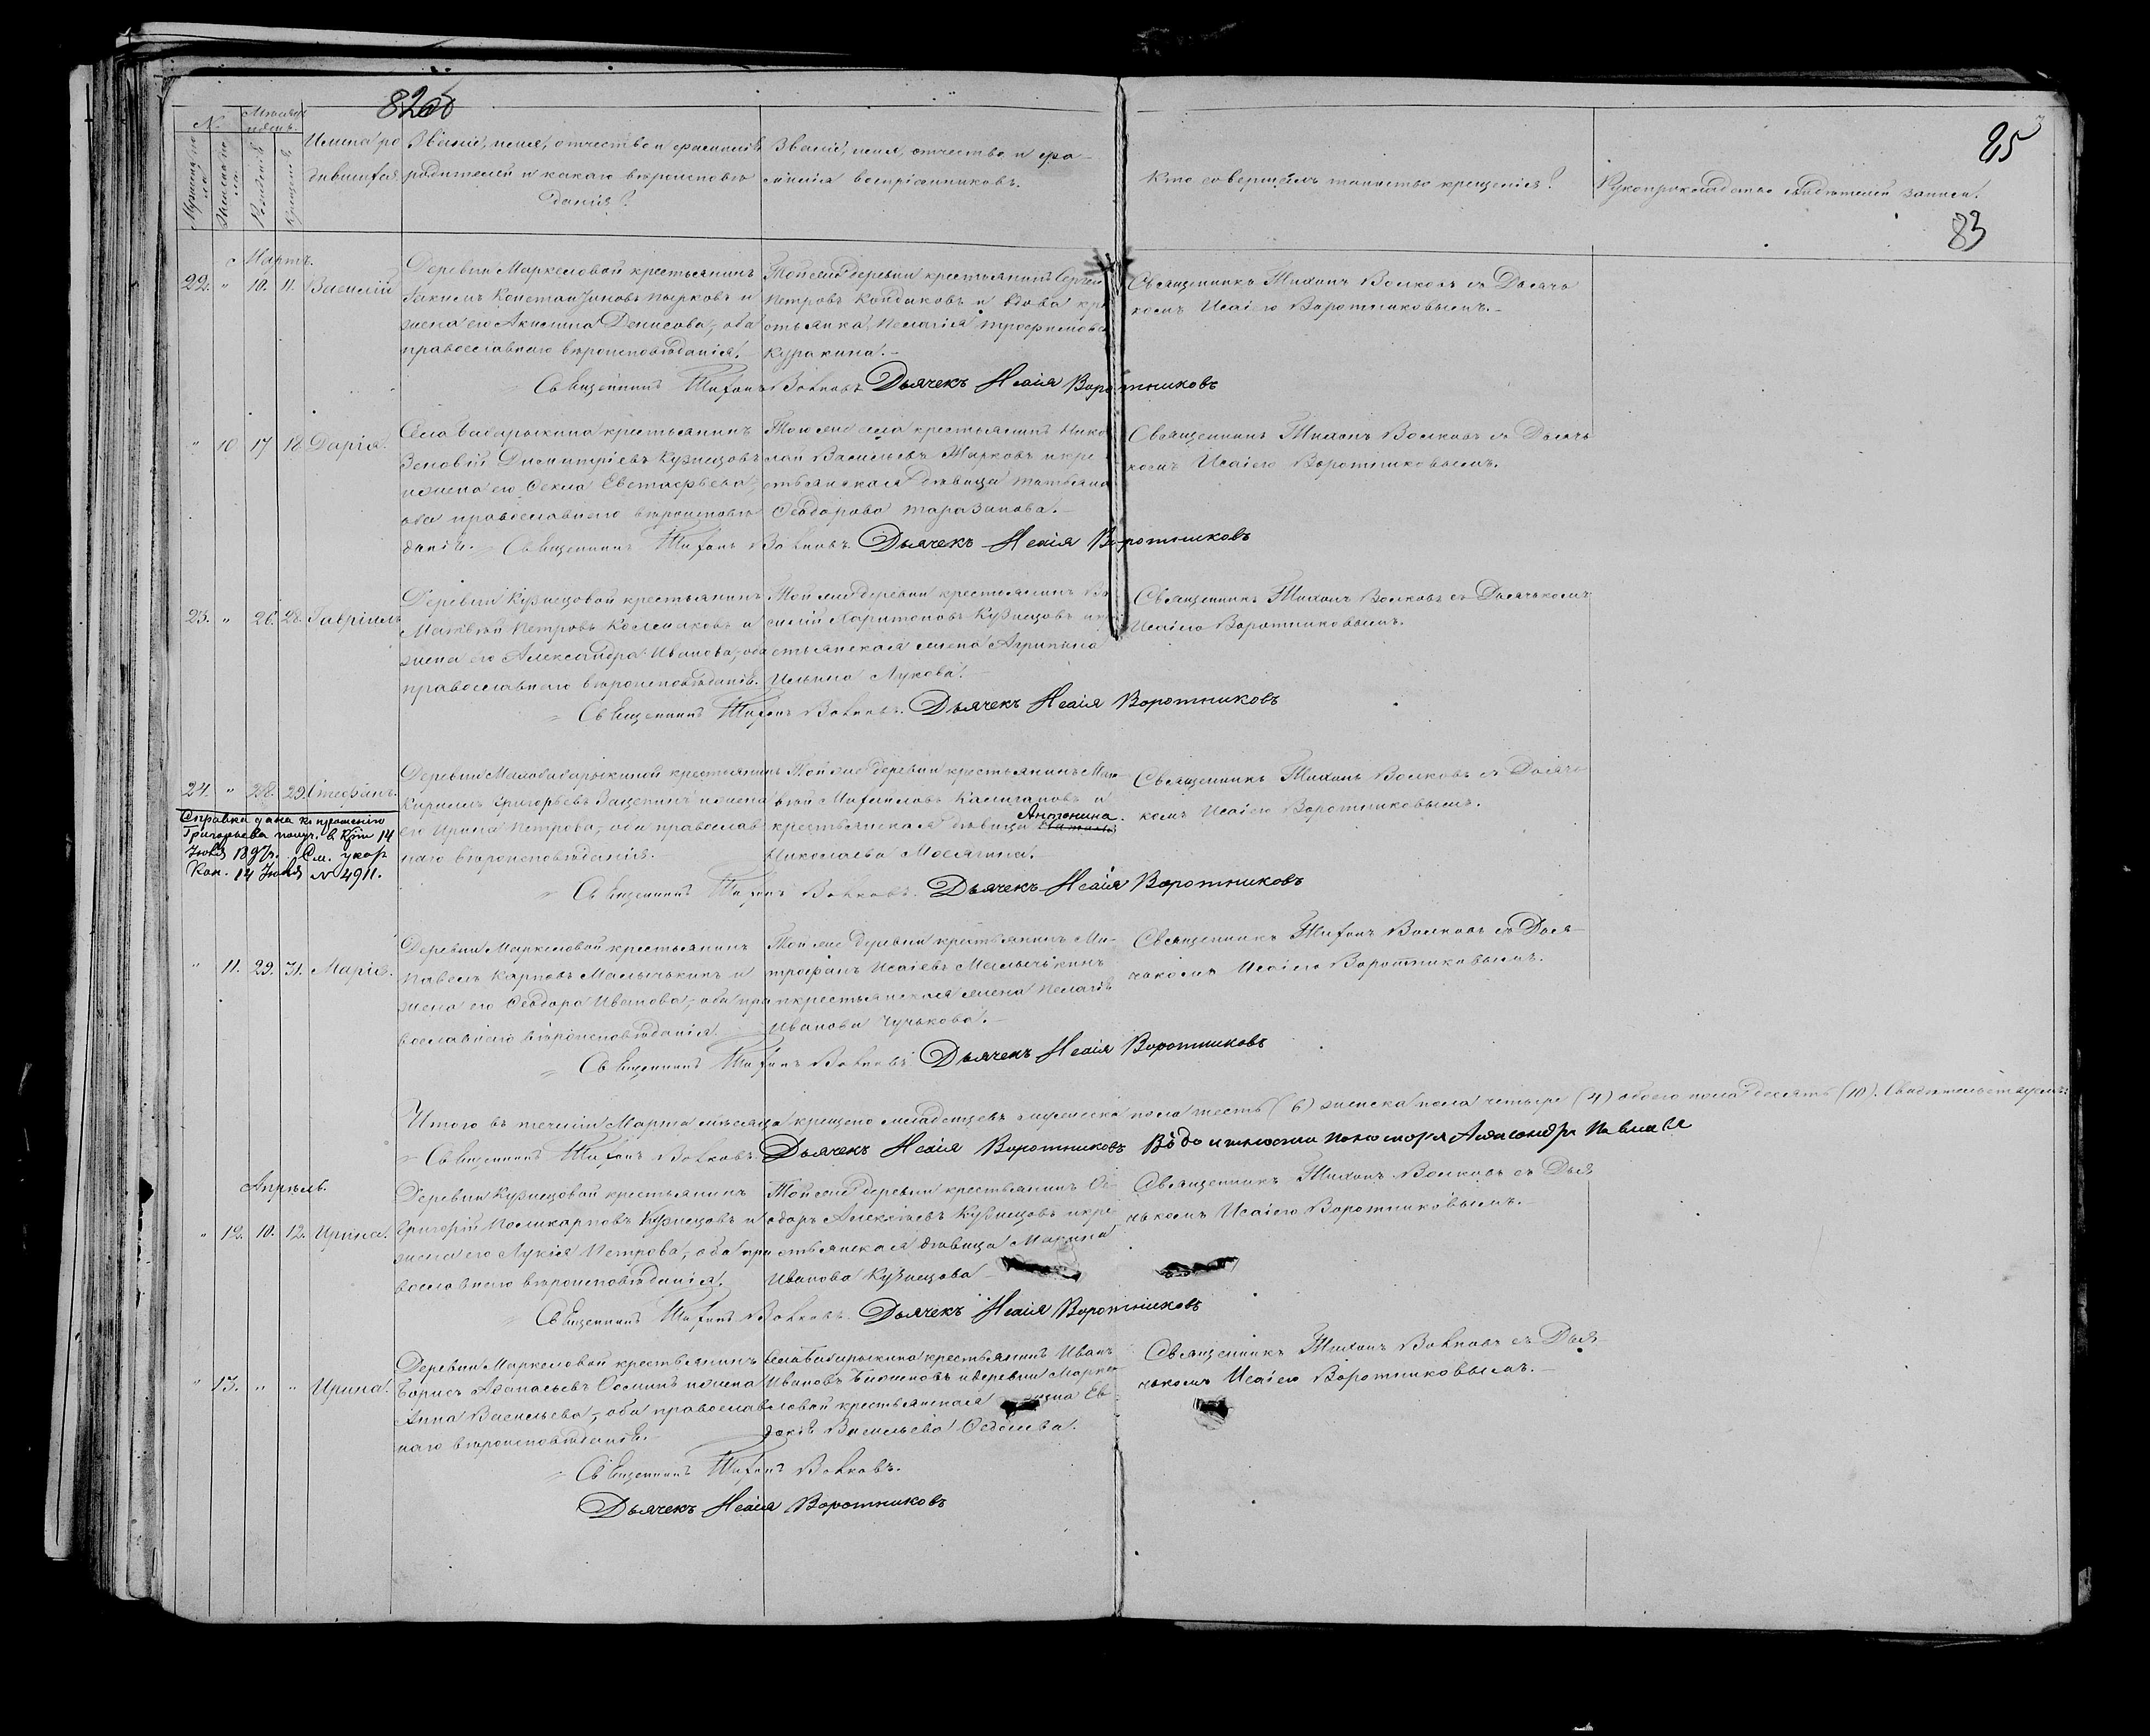 82об
85
83
№
Мѣсяцъ и день.
Мужеска по
ла
Женска по
ла
Рожденія
Крещенія
Имена ро
дившихся
Званіе, имя, отчество и фамилія
родителей и какаго вѣроисповѣ
данія?
Званіе, имя, отчество и фа-
милія воспріемниковъ.
Кто совершалъ таинство крещенія?
Рукоприкладство свидѣтелей записи.
Мартъ.
22. " 10. 11. Василій
Деревни Маркеловой крестьянинъ
Іакимъ Константиновъ Пырковъ и
жена его Акилина Денисова, оба
православнаго вѣроисповѣданія.
Той же деревни крестьянинъ Сергѣй
Петровъ Кондаковъ и вдова кре
стьянка Пелагія Трофимова
Куракина.-
Священникъ Тихонъ Волковъ съ Дьячь
комъ Исаіею Воротниковымъ.-
Священникъ Тихонъ Волковъ Дьячекъ Исаія Воротниковъ
" 10 17 18 Дарія.
Села Бабарыкина крестьянинъ
Зеновій Димитріевъ Кузнецовъ
и жена его Фекла Евстафьева,
оба православнаго вѣроисповѣ
данія.
Тогоже села крестьянинъ Нико
лай Васильевъ Жирковъ и кре
стьянская дѣвица Татьяна
Феодорова Таразанова.-
Священникъ Тихонъ Волковъ съ Дьячь
комъ Исаіею Воротниковымъ.
Священникъ Тихонъ Волковъ Дьячекъ Исаія Воротниковъ
23. " 26. 28. Гавріилъ
Деревни Кузнецовой крестьянинъ
Матвѣй Петровъ Колмаковъ и
жена его Александра Иванова, оба
православнаго вѣроисповѣданія.
Той же деревни крестьянинъ Ва
силій Харитоновъ Кузнецовъ и кре
стьянская жена Агрипина
Ильина Лукова.
Священникъ Тихонъ Волковъ съ Дьячькомъ
Исаіею Воротниковымъ.
Священникъ Тихонъ Волковъ. Дьячекъ Исаія Воротниковъ
24. " 28. 29. Стефанъ.
Справка дана по прошенію
Григорьева
14
1897г.
14 Іюня № 4911.
Деревни Малобабарыкиной крестьянинъ
Кириллъ Григорьевъ Зацепинъ и жена
его Ирина Петрова, оба православ
наго вѣроисповѣданія.-
Той же деревни крестьянинъ Мат
вѣй Михайловъ Калигановъ и
Антонина.
крестьянская дѣвица
Николаева Молягина.
Священникъ Тихонъ Волковъ съ Дьячь
комъ Исаіею Воротниковымъ.
Священникъ Тихонъ Волковъ. Дьячекъ Исаія Воротниковъ
" 11. 29. 31. Марія.
Деревни Маркеловой крестьянинъ
Павелъ Карповъ Малычькинъ и
жена его Феодора Иванова, оба пра
вославнаго вѣроисповѣданія.
Той же деревни крестьянинъ Ми-
трофанъ Исаіевъ Малычькинъ
и крестьянская жена Пелагія
Иванова Чунькова.-
Священникъ Тихонъ Волковъ съ Дья-
чькомъ Исаіею Воротниковымъ.
Священникъ Тихонъ Волковъ Дьячекъ Исаія Воротниковъ
Итого въ теченіи Марта мѣсяца крещено младенцевъ мужеска пола шесть (6) женска пола четыре (4) обоего пола десять (10). Свидѣтельствуемъ:
Священникъ Тихонъ Волковъ Дьячекъ Исаія Воротниковъ Въ должности пономаря Александръ Павловъ
Апрѣль.
" 12. 10. 12. Ирина.
Деревни Кузнецовой крестьянинъ
Григорій Поликарповъ Кузнецовъ и
жена его Лукія Петрова, оба пра
вославнаго вѣроисповѣданія.
Той же деревни крестьянинъ Фе
одоръ Алексіевъ Кузнецовъ и кре
стьянская дѣвица Марина
Иванова Кузнецова
Священникъ Тихонъ Волковъ съ Дья
чькомъ Исаіею Воротниковымъ.-
Священникъ Тихонъ Волковъ. Дьячекъ Исаія Воротниковъ
" 13. " " Ирина.
Деревни Маркеловой крестьянинъ
Борисъ Афанасьевъ Фоминъ и жена
Анна Васильева, оба православ
наго вѣроисповѣданія.-
Села Бабарыкина крестьянинъ Иванъ
Ивановъ и деревни Марке
ловой крестьянская Ев-
докія Васильева
Священникъ Тихонъ Волковъ съ Дья
чькомъ Исаіею Воротниковымъ.-
Священникъ Тихонъ Волковъ.
Дьячекъ Исаія Воротниковъ